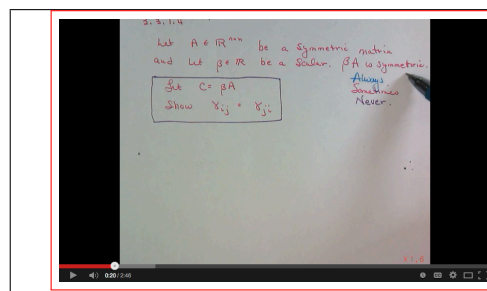 Let A ∈ ℝⁿˣⁿ be a symmetric matrix
and let β ∈ ℝ be a scalar. βA is symmetric.
Always
Sometimes
Never.
Let C = βA
Show γᵢⱼ = γⱼᵢ
0:20 / 2:48